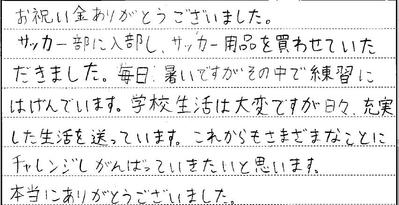 お祝い金ありがとうございました。
サッカー部に入部し、サッカー用品を買わせていた
だきました。毎日、暑いですがその中で練習に
はげんでいます。学校生活は大変ですが日々、充実
した生活を送っています。これからもさまざまなことに
チャレンジしがんばっていきたいと思います。
本当にありがとうございました。